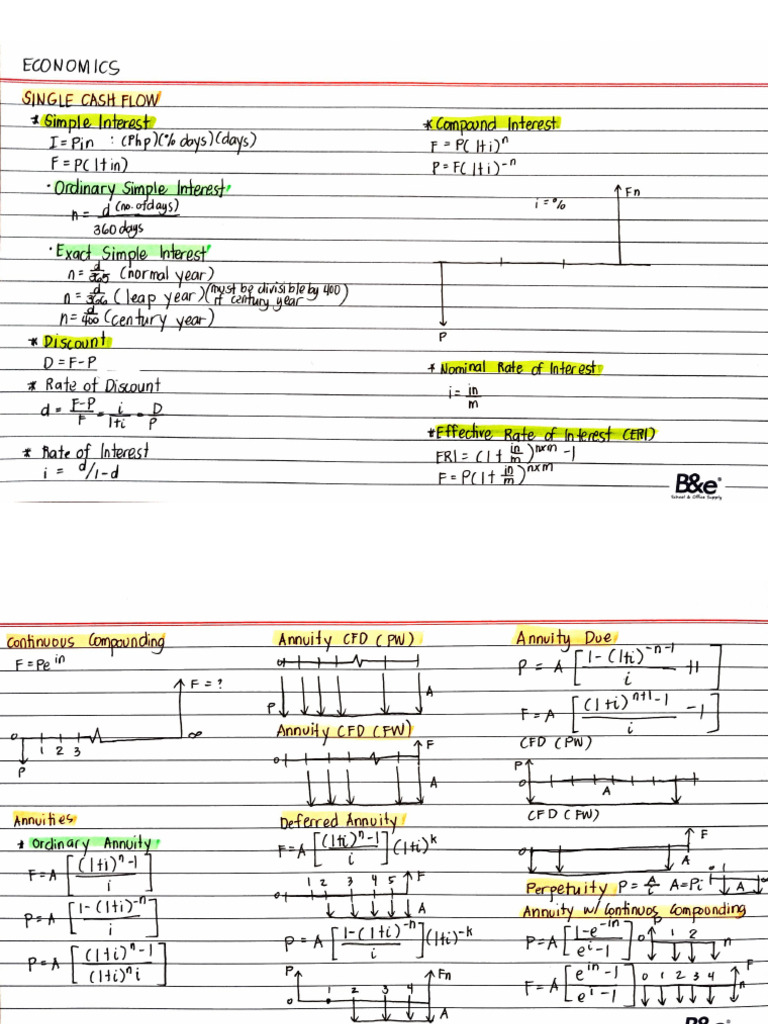 ECONOMICS
SINGLE CASH FLOW
* Simple Interest
I = Pin : (Php)(% days)(days)
F = P(1+in)
· Ordinary Simple Interest
n = d (no. of days) / 360 days
· Exact Simple Interest
n = d/365 (normal year)
n = d/366 (leap year) (must be divisible by 400 if century year)
n = d/400 (century year)
* Discount
D = F-P
* Rate of Discount
d = F-P/F = i/1+i = D/P
* Rate of Interest
i = d/1-d
* Compound Interest
F = P(1+i)^n
P = F(1+i)^-n
i = %
Fn
P
* Nominal Rate of Interest
i = in/m
* Effective Rate of Interest (ERI)
ERI = (1 + in/m)^nxm -1
F = P(1 + in/m)^nxm
B&e
School & Office Supply
Continuous Compounding
F = Pe^in
F = ?
0 1 2 3 ∞
P
Annuities
* Ordinary Annuity
F = A [(1+i)^n -1 / i]
P = A [1-(1+i)^-n / i]
P = A [(1+i)^n -1 / (1+i)^n i]
Annuity CFD (PW)
0
P A
Annuity CFD (FW)
F
0
A
Deferred Annuity
F = A [(1+i)^n -1 / i] (1+i)^k
1 2 3 4 5 F
0
A
P = A [1-(1+i)^-n / i] (1+i)^-k
P Fn
0 1 2 3 4
A
Annuity Due
P = A [1-(1+i)^-n-1 / i +1]
F = A [(1+i)^n+1 -1 / i -1]
CFD (PW)
P
0
A
CFD (FW)
F
0
A
Perpetuity P = A/i A = Pi
0 A ∞
Annuity w/ Continuos Compounding
P = A [1-e^-in / e^i -1]
P
0 1 2 n
F = A [e^in -1 / e^i -1]
0 1 2 3 4 F
n
B&e